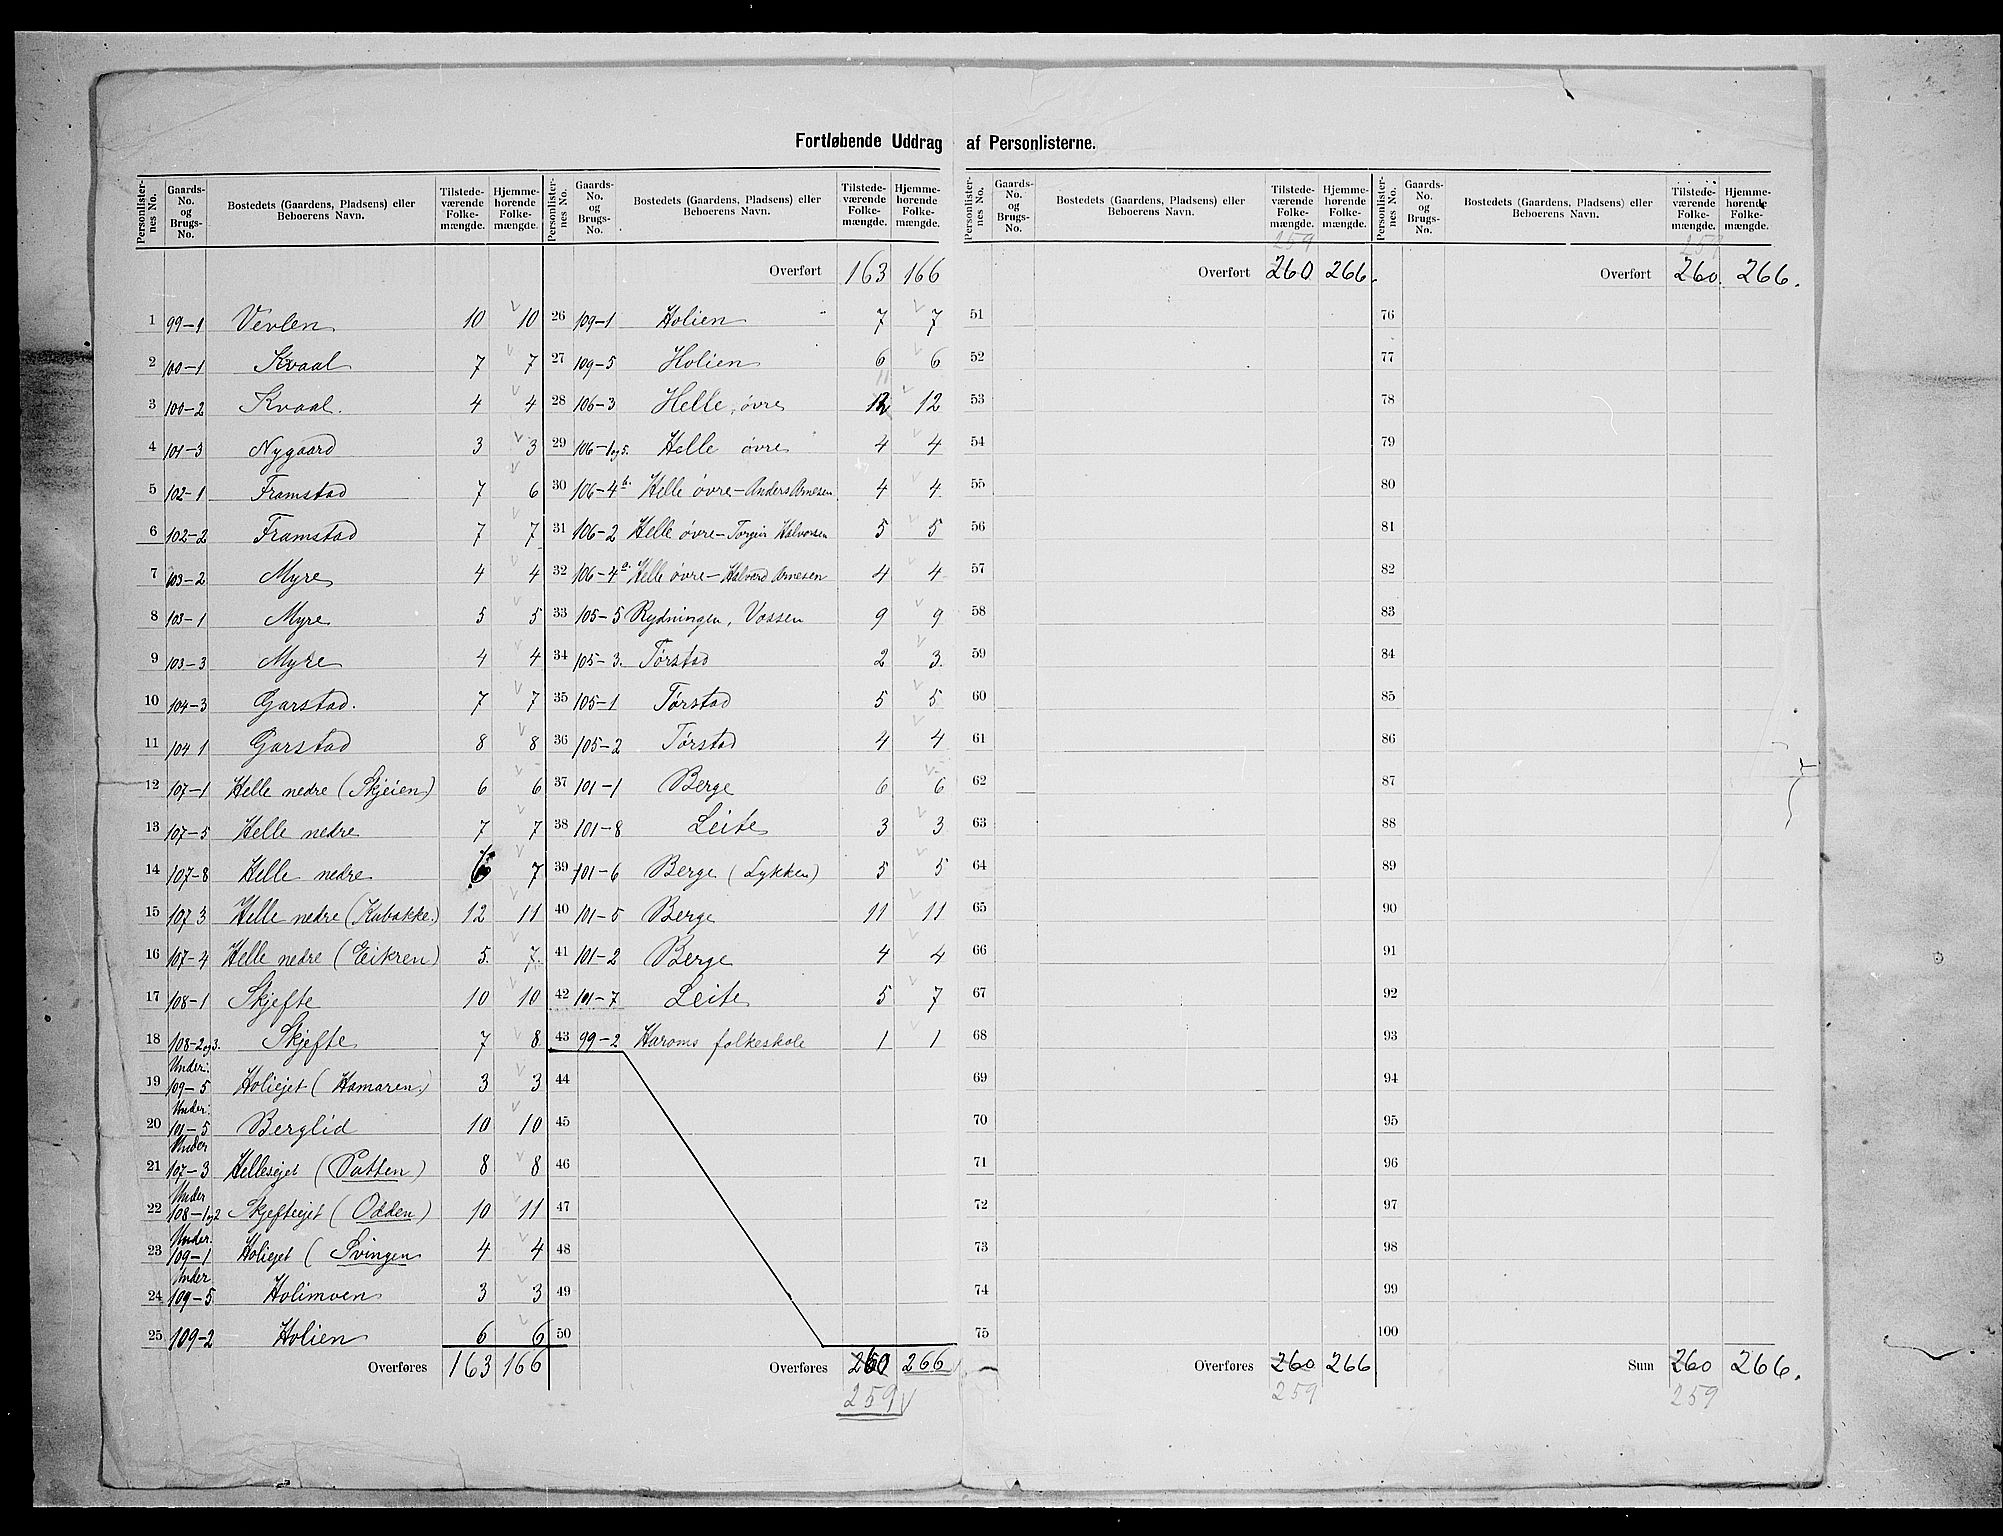 Fortløbende Uddrag af Personlisterne.
Personlisternes No. Gaards-No. og Brugs-No. Bostedets (Gaardens, Pladsens) eller Beboerens Navn. Tilstedeværende Folkemængde. Hjemmehørende Folkemængde.
1 99-1 Vevlen 10 10
2 100-1 Kvaal 7 7
3 100-2 Kvaal. 4 4
4 101-3 Nygaard 3 3
5 102-1 Framstad 7 6
6 102-2 Framstad 7 7
7 103-2 Myre 4 4
8 103-1 Myre 5 5
9 103-3 Myre 4 4
10 104-3 Garstad. 7 7
11 104 1 Garstad 8 8
12 107-1 Helle nedre (Skjeien) 6 6
13 107-5 Helle nedre 7 7
14 107-8 Helle nedre 6 7
15 107 3 Helle nedre (Kabakke.) 12 11
16 107-4 Helle nedre (Eikren) 5. 7.
17 108-1 Skjefte 10 10
18 108-2og3. Skjefte 7 8
19 Under: 109-5 Holiejet (Hamaren.) 3 3
20 Under: 101-5 Berglid 10 10
21 Under 107-3 Hellesejet (Patten) 8 8
22 Under 108-1og2 Skjefteiet (Odden) 10 11
23 Under. 109-1 Holiejet (Svingen 4 4
24 Under 109-5. Holimoen 3 3
25 109-2 Holien 6 6
Overføres 163 166
Personlisternes No. Gaards-No. og Brugs-No. Bostedets (Gaardens, Pladsens) eller Beboerens Navn. Tilstedeværende Folkemængde. Hjemmehørende Folkemængde.
Overført 163 166
26 109-1 Holien 7 7
27 109-5 Holien 6 6
11
28 106-3 Helle, øvre 12 12
29 106-1og5. Helle øvre 4 4
30 106-4b. Helle øvre - Anders Arnesen 4 4
31 106-2 Helle øvre - Torgeir Halvorsen 5 5
32 106-4a. Helle øvre - Halvord Arnesen 4 4
33 105-5 Rydningen, Vossen 9 9
34 105-3. Tørstad 2 3.
35 105-1 Tørstad 5 5
36 105-2 Tørstad 4 4
37 101-1 Berge 6 6
38 101-8 Leite 3 3
39 101-6 Berge (Lykken) 5 5
40 101-5 Berge 11 11
41 101-2 Berge 4 4
42 101-7 Leite 5 7
43 99-2 Haroms folkeskole 1 1
44
45
46
47
48
49
50
Overføres 260 266
259
Personlisternes No. Gaards-No. og Brugs-No. Bostedets (Gaardens, Pladsens) eller Beboerens Navn. Tilstedeværende Folkemængde. Hjemmehørende Folkemængde.
259
Overført 260 266.
51
52
53
54
55
56
57
58
59
60
61
62
63
64
65
66
67
68
69
70
71
72
73
74
75
Overføres 260 266
259
Personlisternes No. Gaards-No. og Brugs-No. Bostedets (Gaardens, Pladsens) eller Beboerens Navn. Tilstedeværende Folkemængde. Hjemmehørende Folkemængde.
259
Overført 260. 266.
76
77
78
79
80
81
82
83
84
85
86
87
88
89
90
91
92
93
94
95
96
97
98
99
100
Sum 260 266.
259